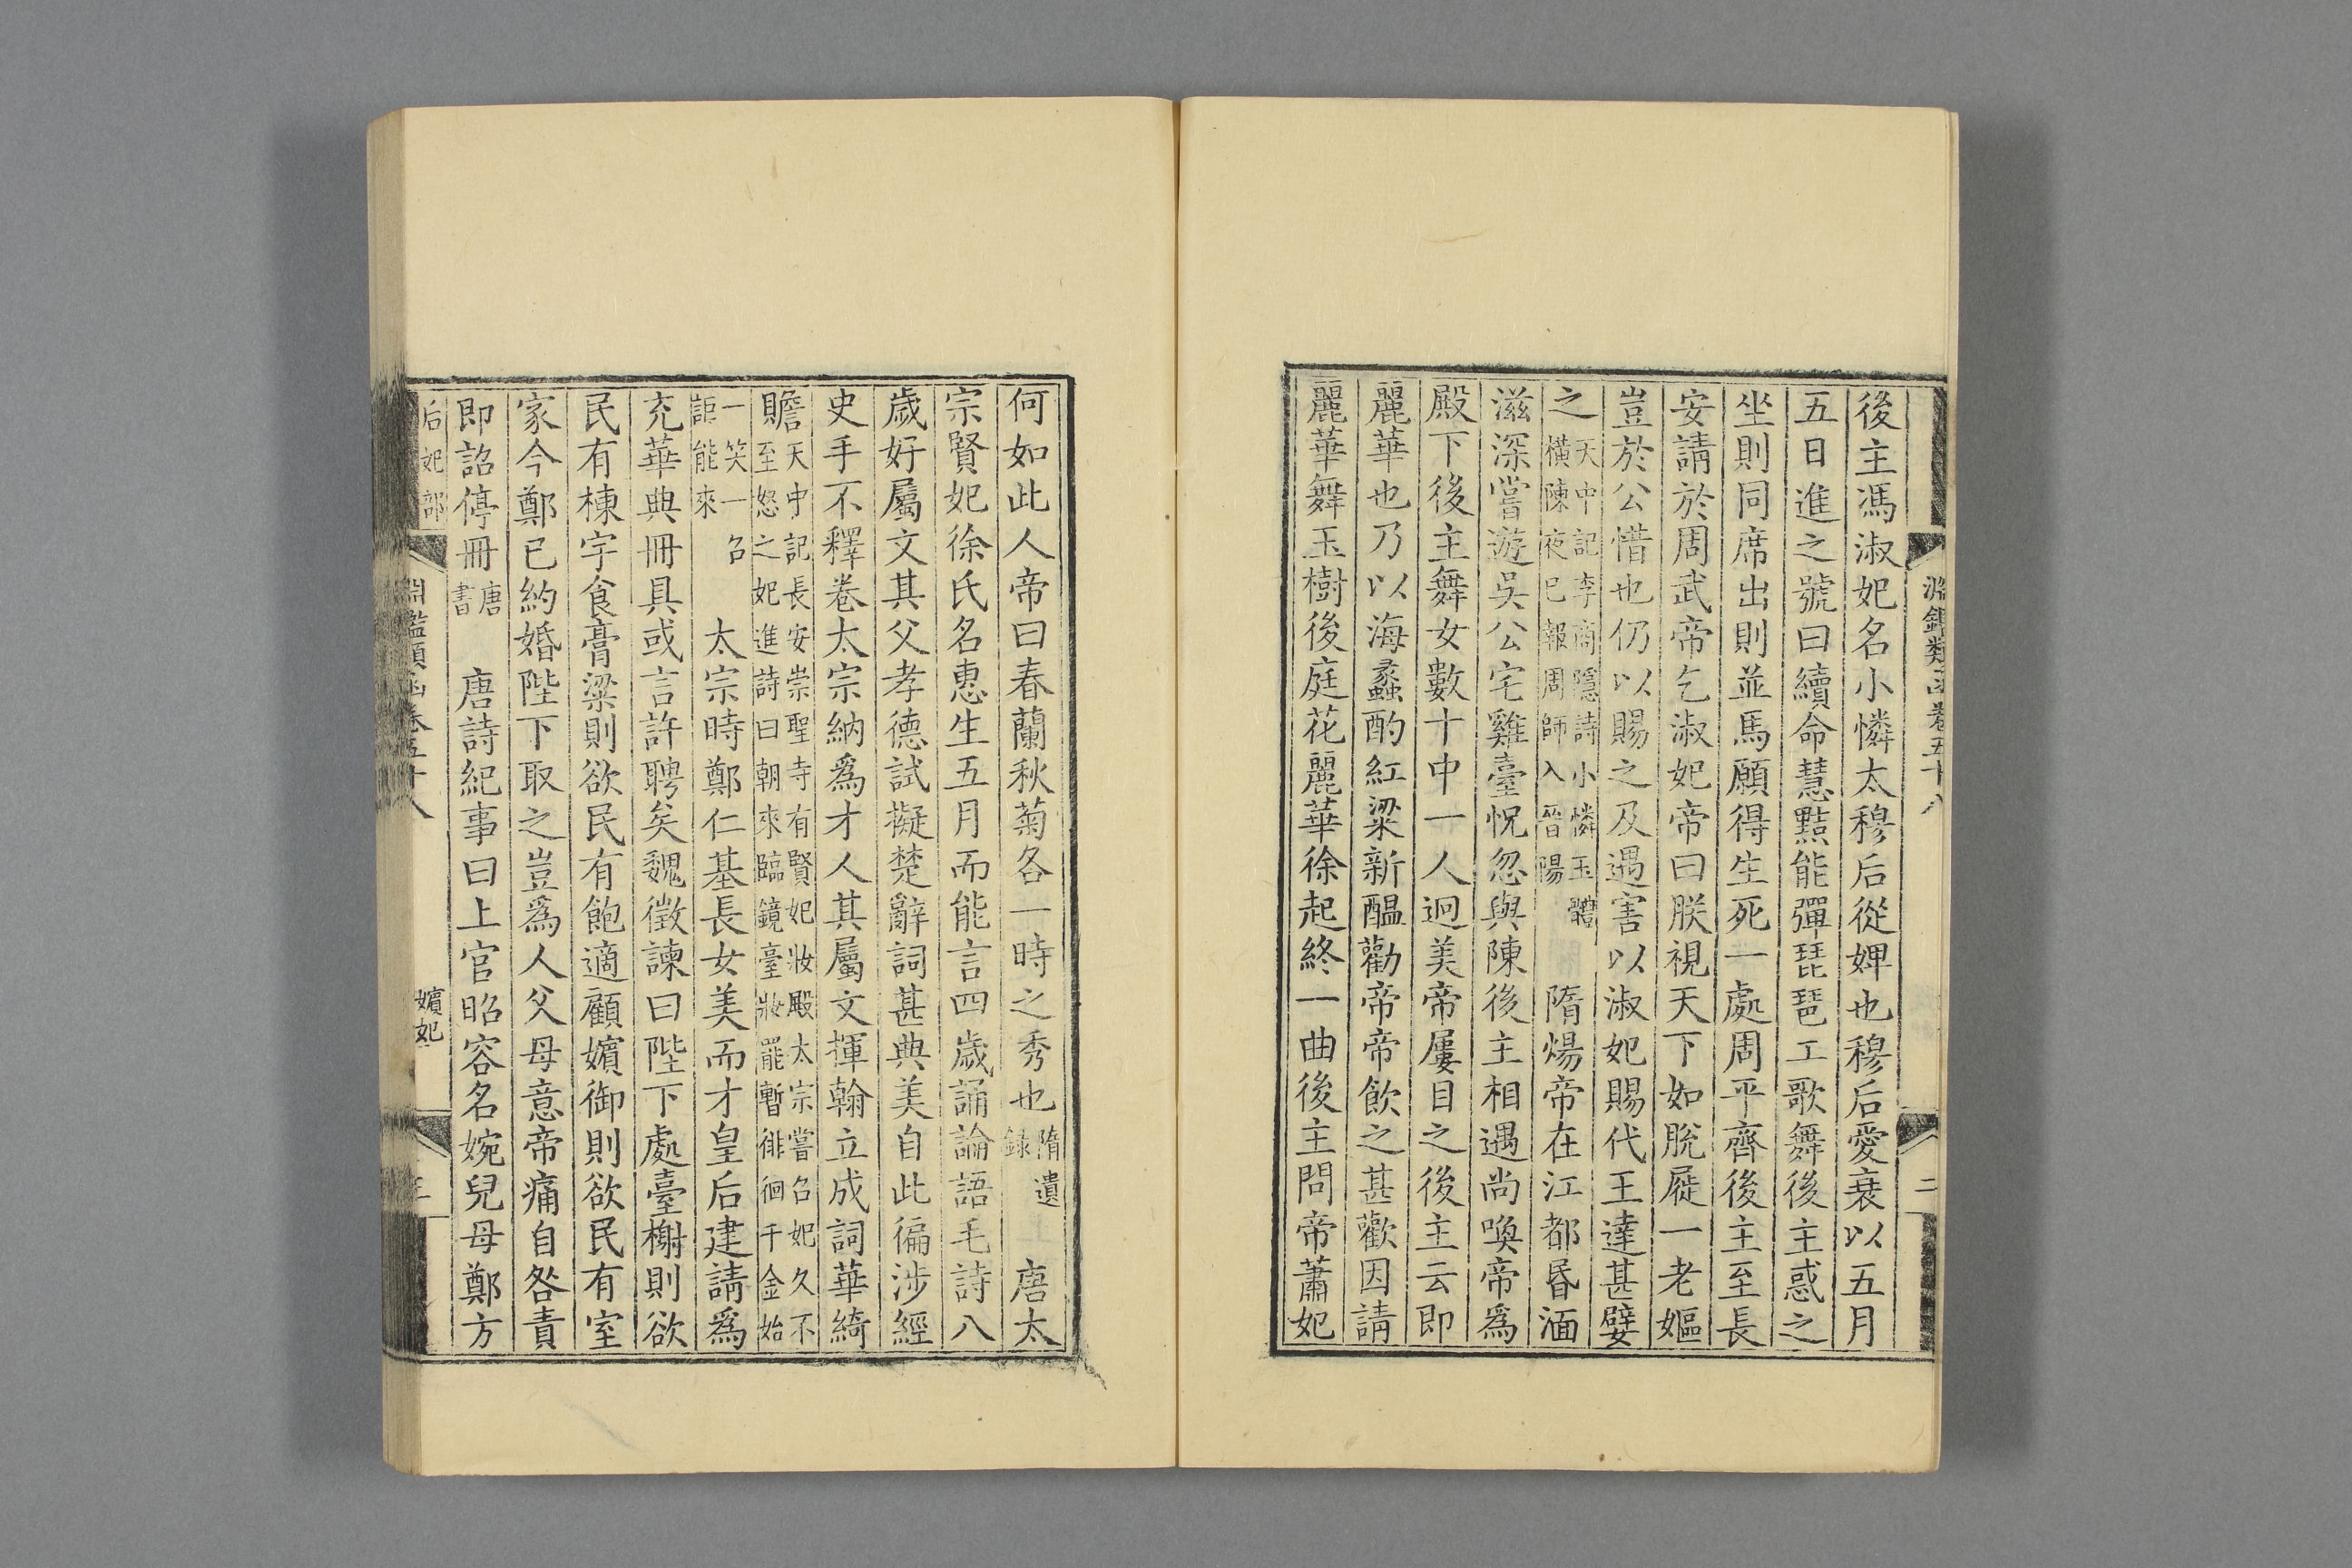 淵鑑類函卷五十八
二
後主馮淑妃名小憐太穆后從婢也穆后愛衰以五月
五日進之號曰續命慧黠能彈琵琶工歌舞後主惑之
坐則同席出則並馬願得生死一處周平齊後主至長
安請於周武帝乞淑妃帝曰朕視天下如脫屣一老嫗
豈於公惜也仍以賜之及遇害以淑妃賜代王達甚嬖
之
天中記李商隱詩小憐玉體
橫陳夜已報周師入晉陽
隋煬帝在江都昏湎
滋深嘗遊吳公宅雞臺怳忽與陳後主相遇尚喚帝爲
殿下後主舞女數十中一人迥美帝屢目之後主云即
麗華也乃以海蠡酌紅粱新醞勸帝帝飲之甚歡因請
麗華舞玉樹後庭花麗華徐起終一曲後主問帝蕭妃
何如此人帝曰春蘭秋菊各一時之秀也
隋遺
錄
唐太
宗賢妃徐氏名惠生五月而能言四歲誦論語毛詩八
歲好屬文其父孝德試擬楚辭詞甚典美自此徧涉經
史手不釋卷太宗納爲才人其屬文揮翰立成詞華綺
贍
天中記長安崇聖寺有賢妃妝殿太宗嘗召妃久不
至怒之妃進詩曰朝來臨鏡臺妝罷暫徘徊千金始
一笑一召
詎能來
太宗時鄭仁基長女美而才皇后建請爲
充華典冊具或言許聘矣魏徵諫曰陛下處臺榭則欲
民有棟宇食膏粱則欲民有飽適顧嬪御則欲民有室
家今鄭已約婚陛下取之豈爲人父母意帝痛自咎責
即詔停冊
唐
書
唐詩紀事曰上官昭容名婉兒母鄭方
后妃部
淵鑑類函卷五十八
嬪妃
三